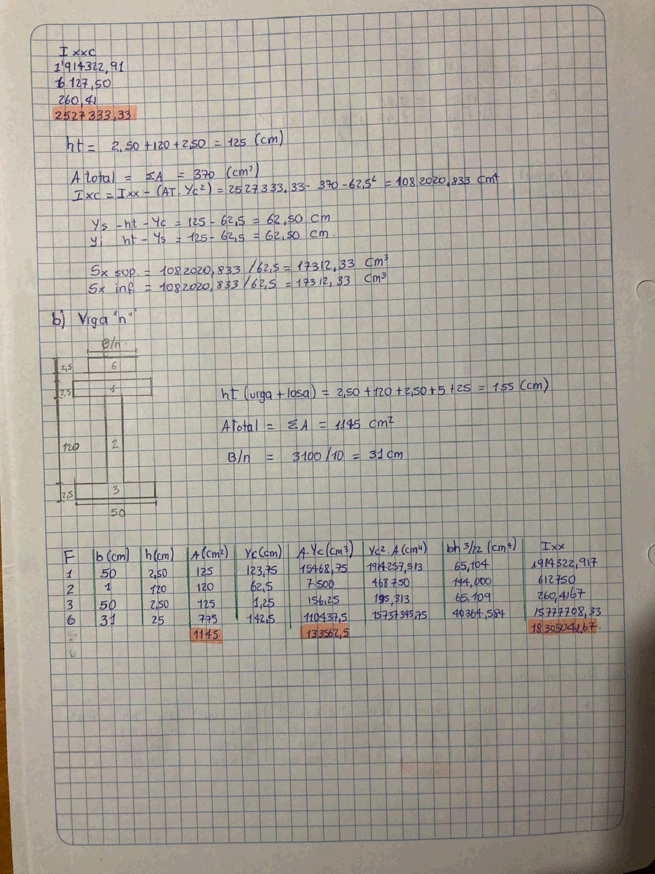 Ixxc
1'914322,91
6127,50
260,41
2527333,33
ht = 2,50+120+2,50 = 125 (cm)
A total = ΣA = 370 (cm²)
Ixc = Ixx - (AT. Yc²) = 2527333.33 - 370 - 62,5² = 1082020,833 cm⁴
Ys - ht - Yc = 125 - 62,5 = 62,50 cm
yi ht - Ys = 125 - 62,5 = 62,50 cm
Sx sup. = 1082020,833 / 62,5 = 17312,33 cm³
Sx inf. = 1082020,833 / 62,5 = 17312,33 cm³
b) Viga "n"
B/n
2,5 6
2,5 1
120 2
2,5 3
50
ht (viga + losa) = 2,50 + 120 + 2,50 + 5 + 25 = 155 (cm)
A total = ΣA = 1145 cm²
B/n = 3100/10 = 31 cm
F b (cm) h (cm) A (cm²) Yc (cm) A.Yc (cm³) Yc². A (cm⁴) bh³/12 (cm⁴) Ixx
1 50 2,50 125 123,75 15468,75 1914257,813 65,104 1914322,917
2 1 120 120 62,5 7500 468750 144,000 612750
3 50 2,50 125 1,25 156,25 195,313 65,104 260,4167
6 31 25 775 142,5 110437,5 15737343,75 40364,584 15777708,33
1145 133562,5 18305041,67